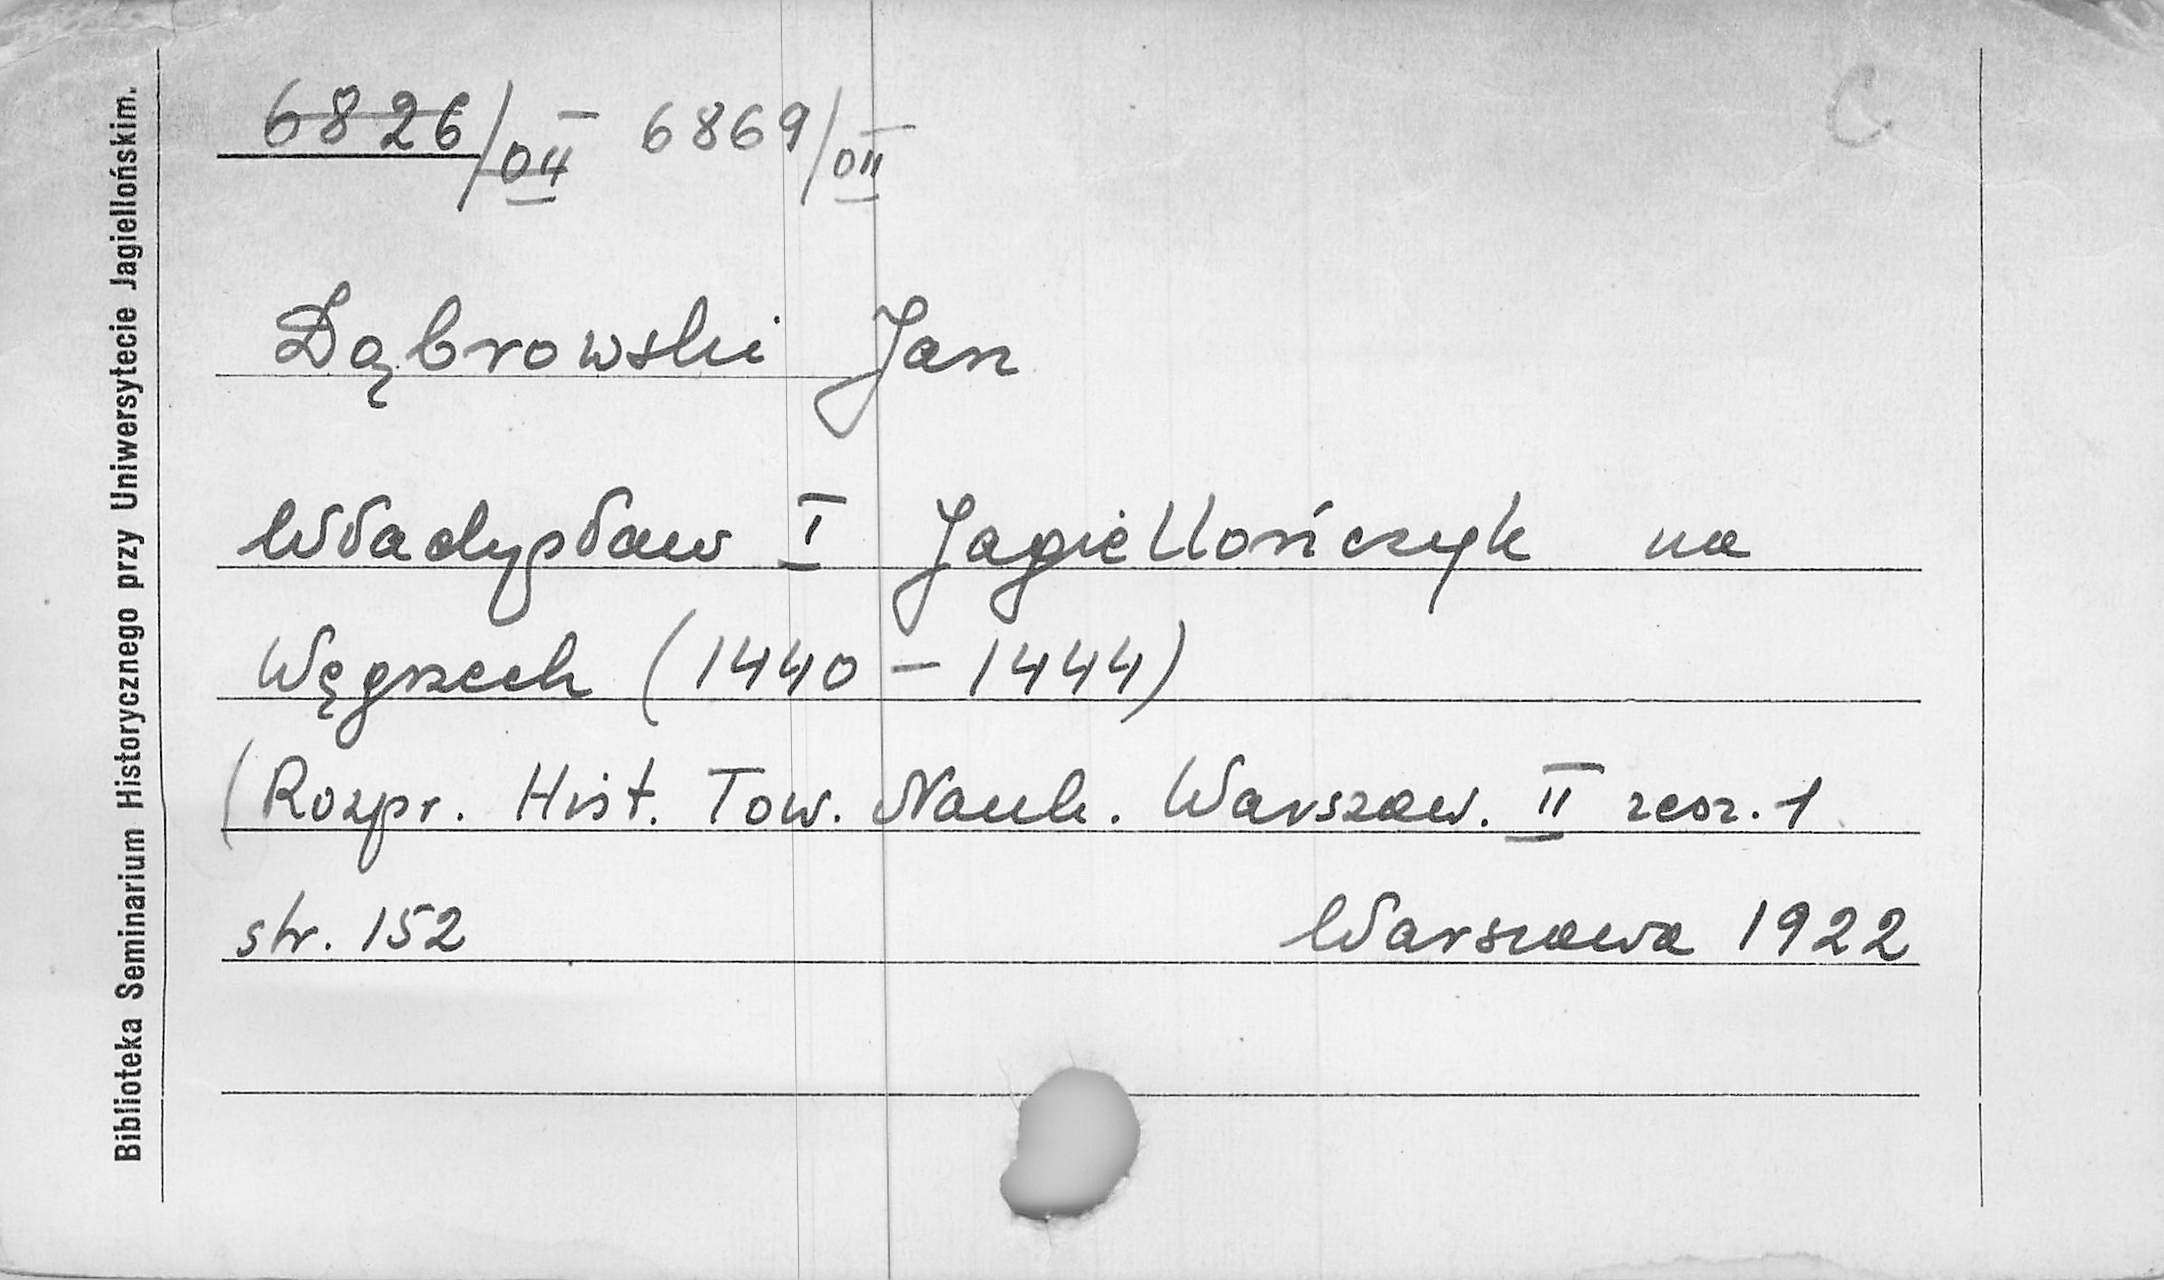 6826/OII 6869/OII
C
Dąbrowski Jan
Władysław I Jagiellończyk na
Węgrzech (1440 – 1444)
(Rozpr. Hist. Tow. Nauk. Warszaw. II zesz. 1
str. 152 Warszawa 1922
Biblioteka Seminarium Historycznego przy Uniwersytecie Jagiellońskim.